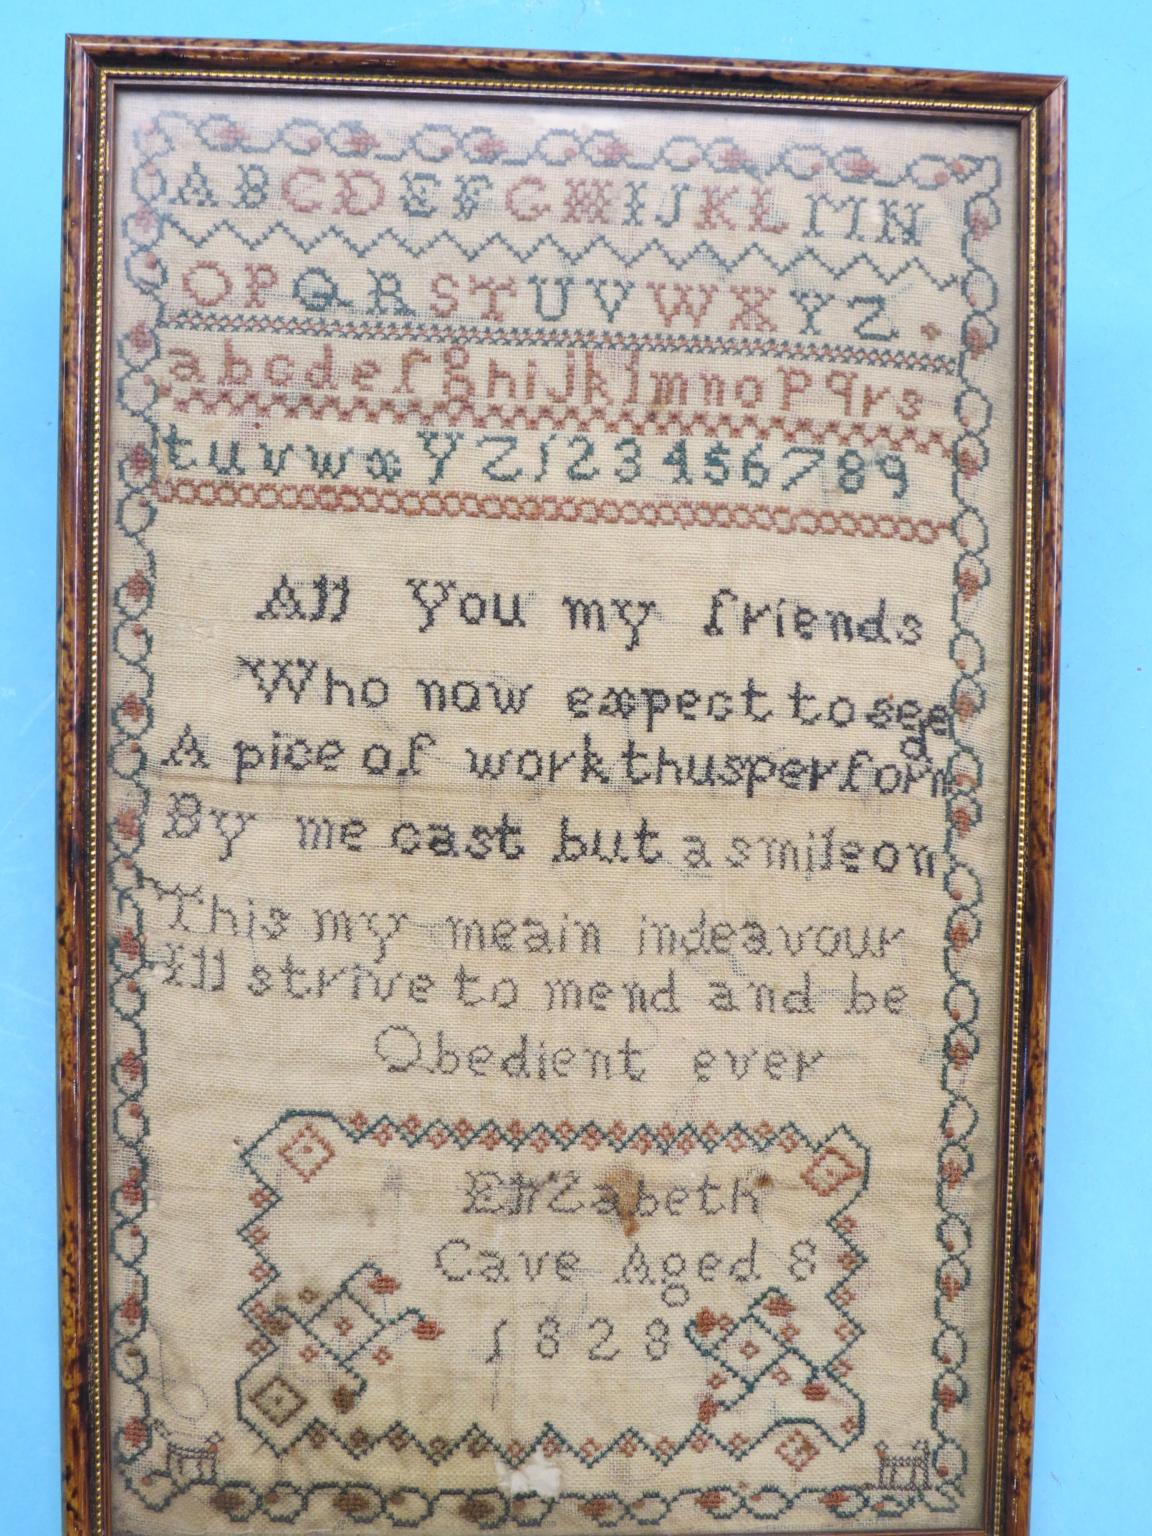 A B C D E F G H I J K L M N
O P Q R S T U V W X Y Z
a b c d e f g h i j k l m n o p q r s
t u v w x y z 1 2 3 4 5 6 7 8 9
All You my friends
Who now expect to see
A pice of work thus performd
By me cast but a smile on
This my meain indeavour
I'll strive to mend and be
Obedient ever
Elizabeth
Cave Aged 8
1828